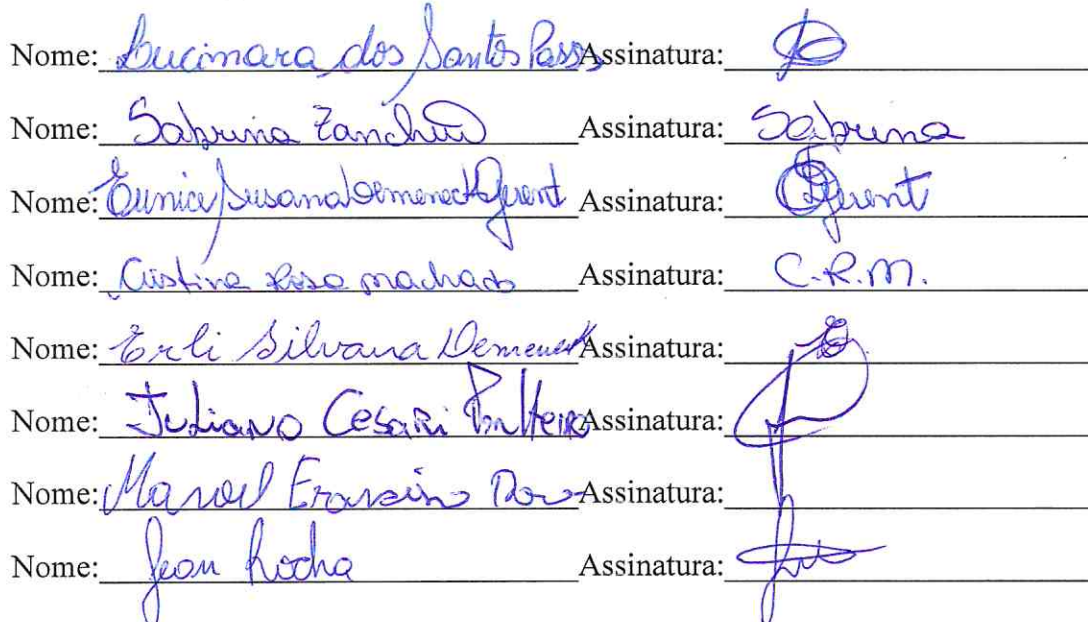 Nome: Lucimara dos Santos Passos Assinatura:
Nome: Sabrina Assinatura: Sabrina
Nome: Eunice Susana Demeneck Gerent Assinatura: Gerent
Nome: Cristina Rosa machado Assinatura: C.R.M.
Nome: Erli Silvana Demeneck Assinatura:
Nome: Juliano Cesari Assinatura:
Nome: Manoel Assinatura:
Nome: Jean Rocha Assinatura: